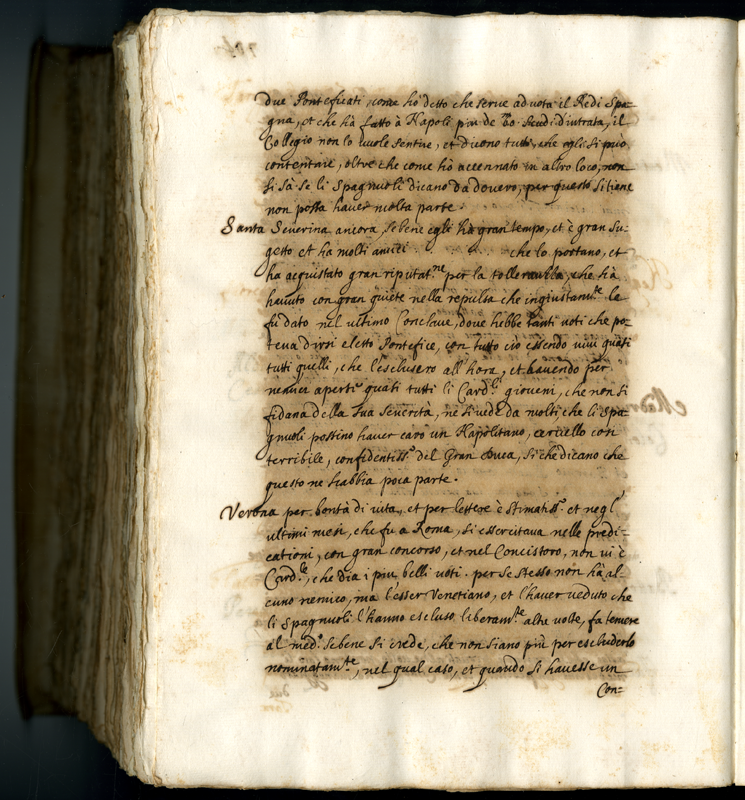 due Ponteficati, come hò detto che serve ad vota il Re di Spa=
gna, et che hà fatto à Napoli piu de scudi d'intrata, il
Collegio non lo vuole sentire, et dicono tutti, che egli si può
contentare, oltre che come hò accennato in altro loco, non
si sà se li Spagnuoli dicano da dovero, per questo si tiene
non possa haver molta parte.
Santa Severina ancora, sebene egli ha gran tempo, et è gran su=
getto et ha molti amici . . . . . che lo portano, et
ha acquistato gran riputat.ne per la tolleranza, che hà
havuto con gran quiete nella repulsa che ingiustam.te le
fu dato nel ultimo Conclave, dove hebbe tanti voti che po=
teva dirsi eletto Pontefice, con tutto ciò essendo vivi quasi
tutti quelli, che l'esclusero all'hora, et havendo per
nemici aperti quasi tutti li Card.li gioveni, che non si
fidano della sua severità, ne si vede da molti che li Spa=
gnuoli possino haver caro un Napolitano, cervello con
terribile, confidentiss.o del Gran Duca, si che dicano che
questo ne habbia poca parte.
Verona per bontà di vita, et per lettere è stimatiss.o et negl'
ultimi mesi, che fu a Roma, si essercitava nelle predi=
cationi, con gran concorso, et nel Concistoro, non vi è
Card.le, che dia i piu belli voti. per se stesso non hà al=
cuno nemico, ma l'esser Venetiano, et l'haver veduto che
li Spagnuoli l'hanno escluso liberam.te altre volte, fa temere
al med.o sebene si crede, che non siano più per escluderlo
nominatam.te, nel qual caso, et quando si havesse un
Con=